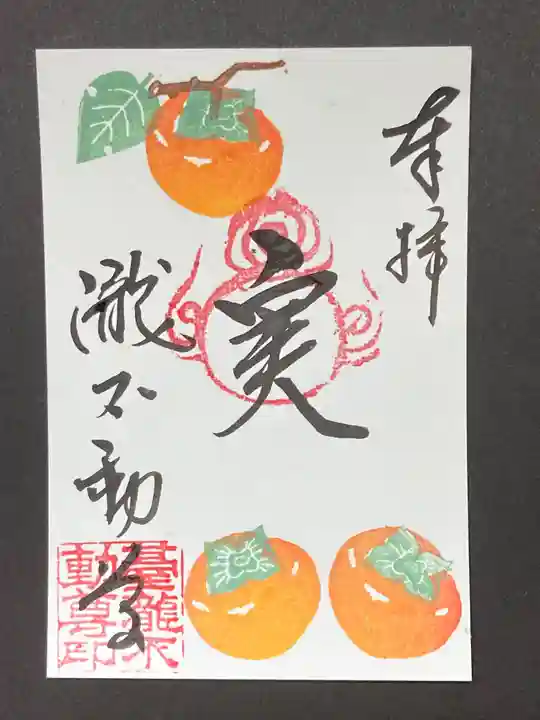 奉拝
実
瀧不動尊
瀧不
動尊印